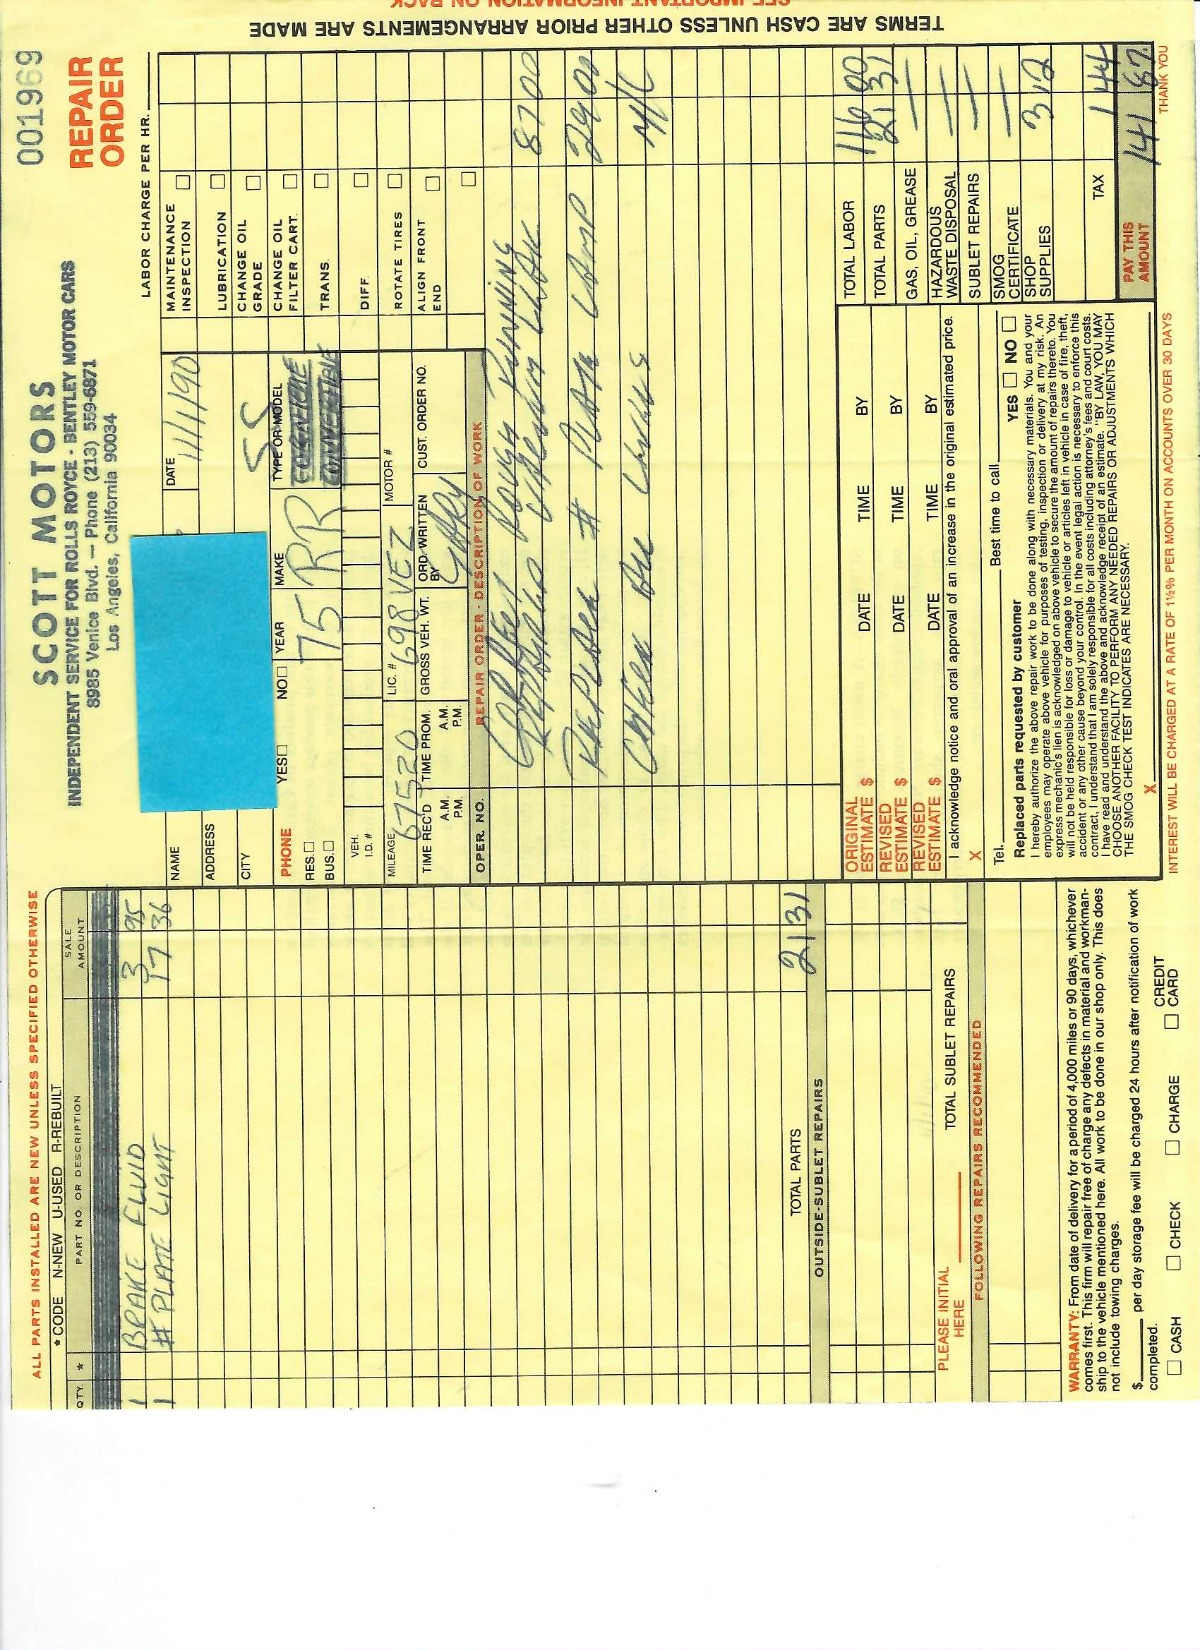 ALL PARTS INSTALLED ARE NEW UNLESS SPECIFIED OTHERWISE
* CODE N-NEW U-USED R-REBUILT
QTY. * PART NO. OR DESCRIPTION SALE AMOUNT
1 BRAKE FLUID 3 95
1 # PLATE LIGHT 17 36
TOTAL PARTS 21 31
OUTSIDE-SUBLET REPAIRS
PLEASE INITIAL HERE
TOTAL SUBLET REPAIRS
FOLLOWING REPAIRS RECOMMENDED
WARRANTY: From date of delivery for a period of 4,000 miles or 90 days, whichever
comes first. This firm will repair free of charge any defects in material and workman-
ship to the vehicle mentioned here. All work to be done in our shop only. This does
not include towing charges.
$ per day storage fee will be charged 24 hours after notification of work
completed.
CASH CHECK CHARGE CREDIT CARD
SCOTT MOTORS
INDEPENDENT SERVICE FOR ROLLS ROYCE - BENTLEY MOTOR CARS
8985 Venice Blvd. — Phone (213) 559-6871
Los Angeles, California 90034
001969
REPAIR ORDER
LABOR CHARGE PER HR.
NAME
DATE 11/1/90
ADDRESS
CITY
PHONE
RES.
BUS.
YES NO
YEAR 75
MAKE RR
TYPE OR MODEL SS
VEH. I.D. #
MILEAGE 67520
LIC. # 698 VEZ
MOTOR #
TIME REC'D A.M. P.M.
TIME PROM. A.M. P.M.
GROSS VEH. WT.
ORD. WRITTEN BY
CUST. ORDER NO.
MAINTENANCE INSPECTION
LUBRICATION
CHANGE OIL GRADE
CHANGE OIL FILTER CART.
TRANS.
DIFF.
ROTATE TIRES
ALIGN FRONT END
OPER. NO. REPAIR ORDER - DESCRIPTION OF WORK
ROUGH RUNNING
87 00
REPLACE # PLATE LAMP 29 00
CHECK N/C
ORIGINAL ESTIMATE $ DATE TIME BY
REVISED ESTIMATE $ DATE TIME BY
REVISED ESTIMATE $ DATE TIME BY
I acknowledge notice and oral approval of an increase in the original estimated price.
X
Tel. Best time to call
Replaced parts requested by customer YES NO
I hereby authorize the above repair work to be done along with necessary materials. You and your
employees may operate above vehicle for purposes of testing, inspection or delivery at my risk. An
express mechanic's lien is acknowledged on above vehicle to secure the amount of repairs thereto. You
will not be held responsible for loss or damage to vehicle or articles left in vehicle in case of fire, theft,
accident or any other cause beyond your control. In the event legal action is necessary to enforce this
contract, I understand that I am solely responsible for all costs including attorney's fees and court costs.
I have read and understand the above and acknowledge receipt of an estimate. "BY LAW, YOU MAY
CHOOSE ANOTHER FACILITY TO PERFORM ANY NEEDED REPAIRS OR ADJUSTMENTS WHICH
THE SMOG CHECK TEST INDICATES ARE NECESSARY.
X
TOTAL LABOR 116 00
TOTAL PARTS 21 31
GAS, OIL, GREASE —
HAZARDOUS WASTE DISPOSAL —
SUBLET REPAIRS —
SMOG CERTIFICATE —
SHOP SUPPLIES 3 12
TAX 1 44
PAY THIS AMOUNT 141 87
THANK YOU
INTEREST WILL BE CHARGED AT A RATE OF 1½% PER MONTH ON ACCOUNTS OVER 30 DAYS
TERMS ARE CASH UNLESS OTHER PRIOR ARRANGEMENTS ARE MADE
SEE IMPORTANT INFORMATION ON BACK